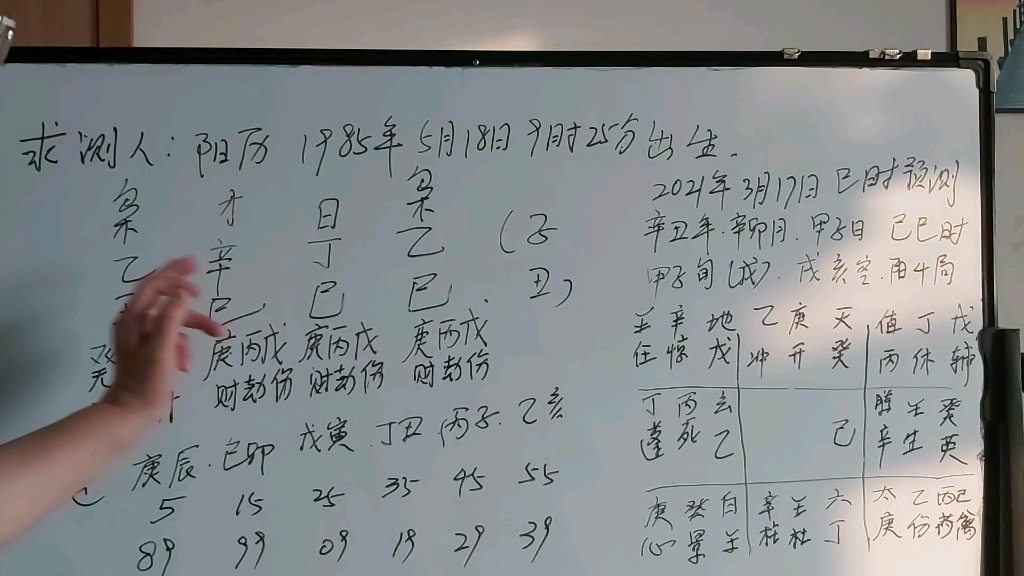 求测人：阳历 1985年 5月18日 9时25分出生.
枭 才 日 枭
乙 辛 丁 乙 (子
巳 巳 巳. 丑)
癸 庚丙戊 庚丙戊 庚丙戊
财劫伤 财劫伤 财劫伤
庚辰. 己卯 戊寅. 丁丑 丙子. 乙亥
5 15 25 35 45 55
89 99 09 19 29 39
2021年3月17日 巳时预测
辛丑年. 辛卯月. 甲子日 己巳时
甲子旬(戊). 戌亥空. 雨4局
壬 辛 地 乙 庚 天 值 丁 戊
任 惊 戊 冲 开 癸 丙 休 辅
丁 丙 玄 螣 壬 癸
蓬 死 乙 己 辛 生 英
庚 癸 白 辛 壬 六 太 乙 丙己
心 景 壬 柱 杜 丁 庚 伤 芮禽